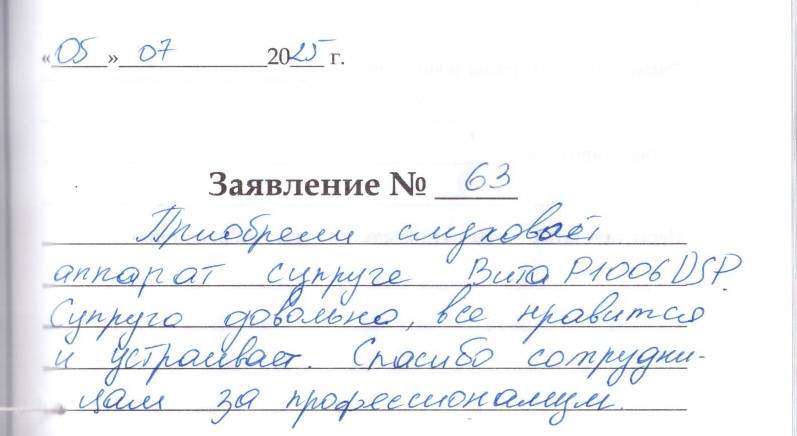 «05» 07 2025 г.
Заявление № 63
Приобрели слуховой
аппарат супруге Вита P1006 DSP.
Супруга довольна, все нравится
и устраивает. Спасибо сотрудни-
цам за профессионализм.